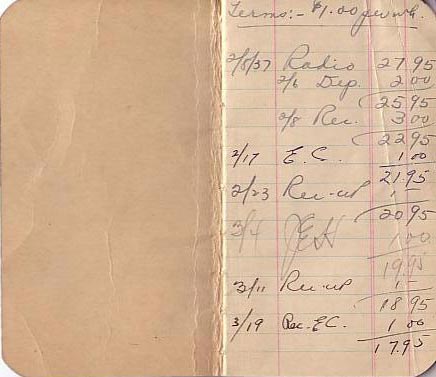 Terms:- $1.00 per wk.
2/5/37 Radio 27.95
2/6 Dep. 2.00
25.95
2/8 Rec. 3.00
22.95
2/17 E.C. 1.00
21.95
2/23 Rec-up 1 -
20.95
3/4 JEH 1.00
19.95
3/11 Rec-up 1 -
18.95
3/19 Rec. E.C. 1.00
17.95